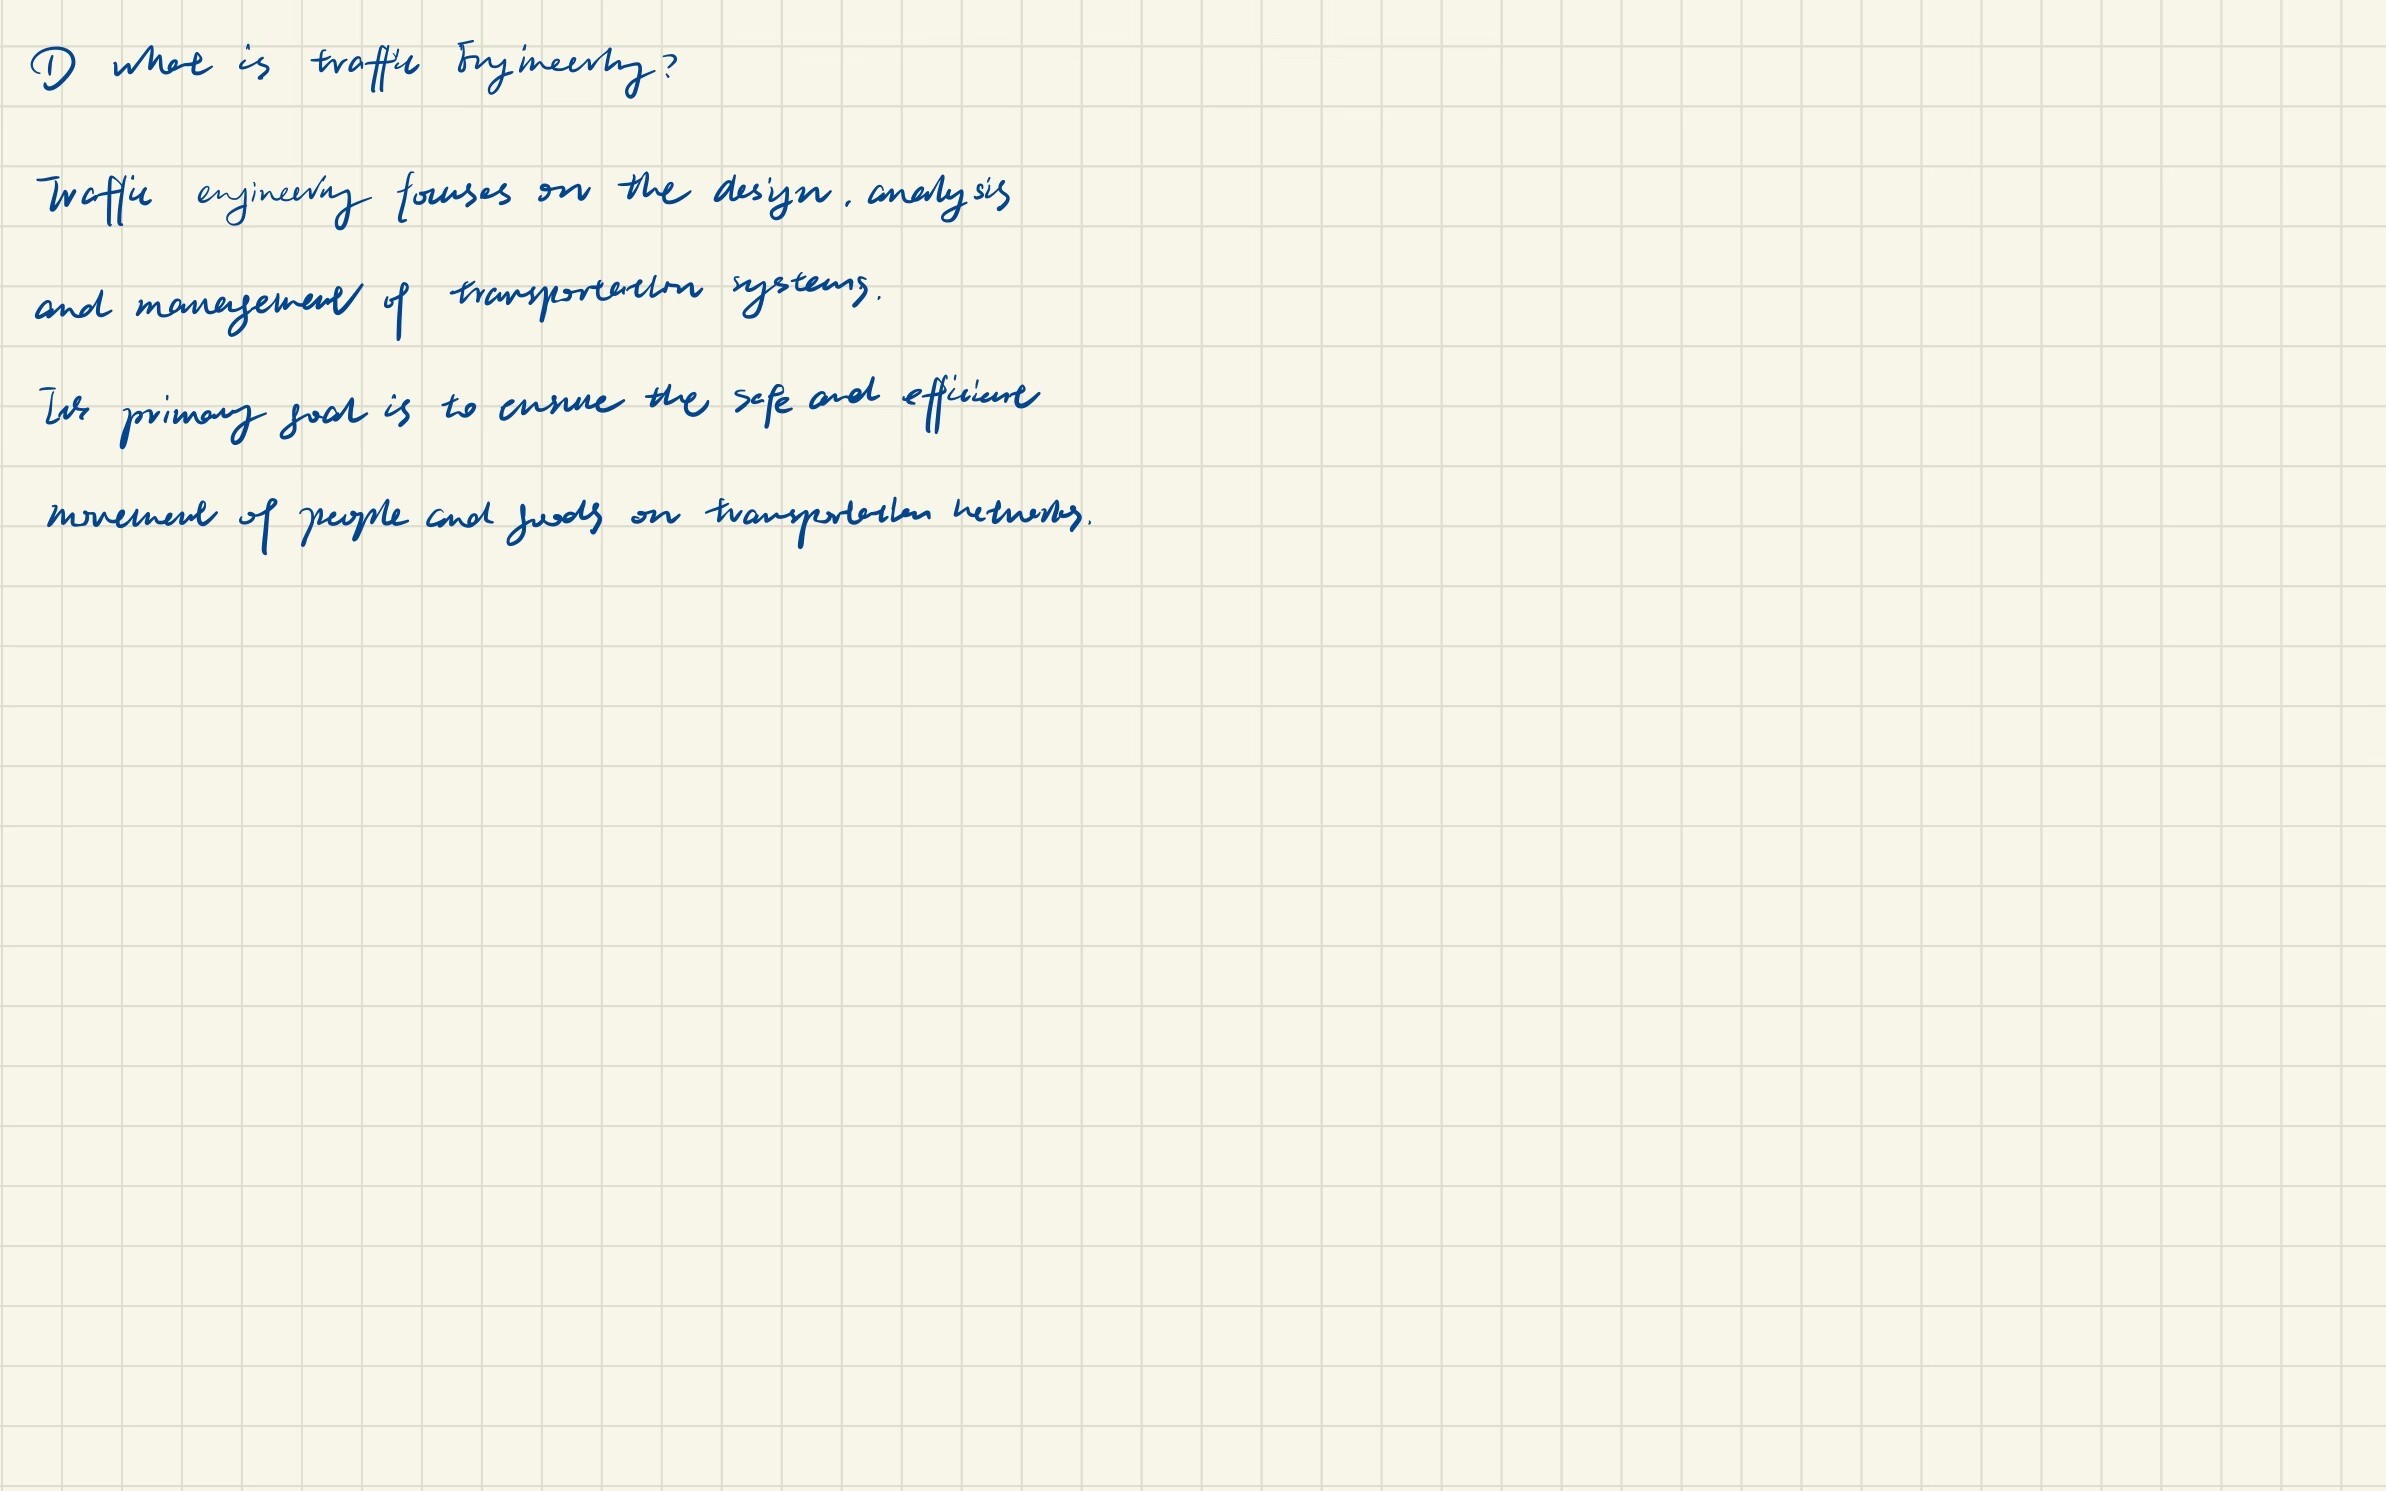 ① what is traffic Engineering?
Traffic engineering focuses on the design, analysis
and management of transportation systems.
Its primary goal is to ensure the safe and efficient
movement of people and goods on transportation networks.